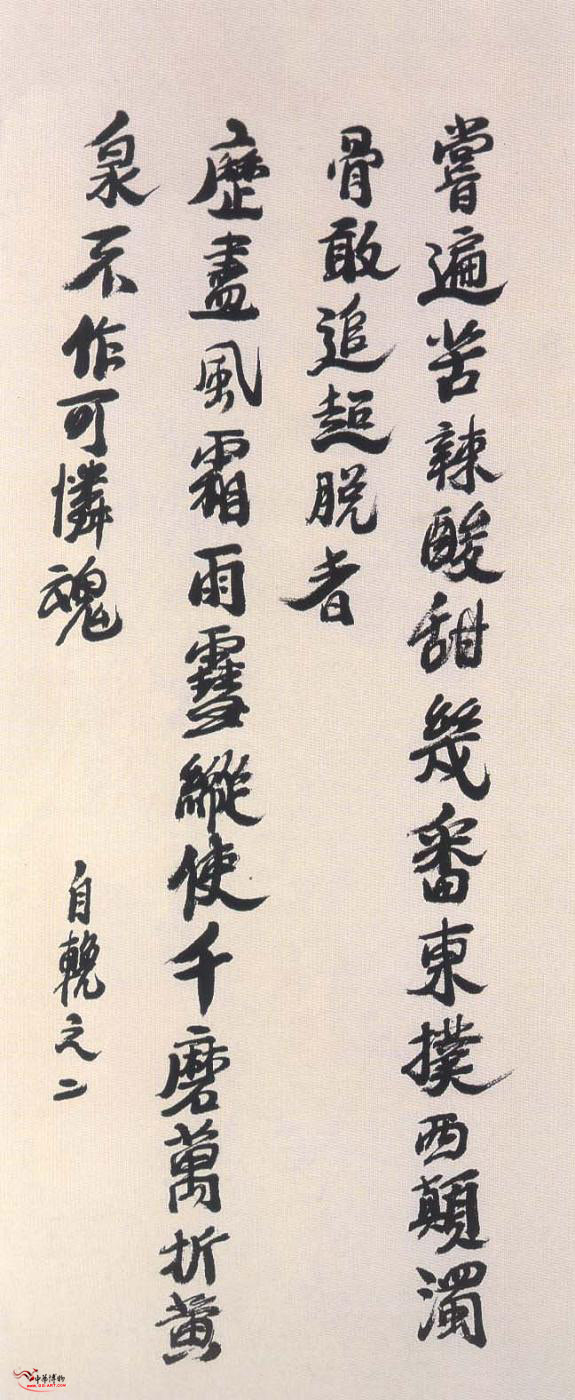 嘗遍苦辣酸甜幾番東撲西顛濁
骨敢追超脫者
歷盡風霜雨雪縱使千磨萬折黄
泉不作可憐魂
自輓之二
中華博物